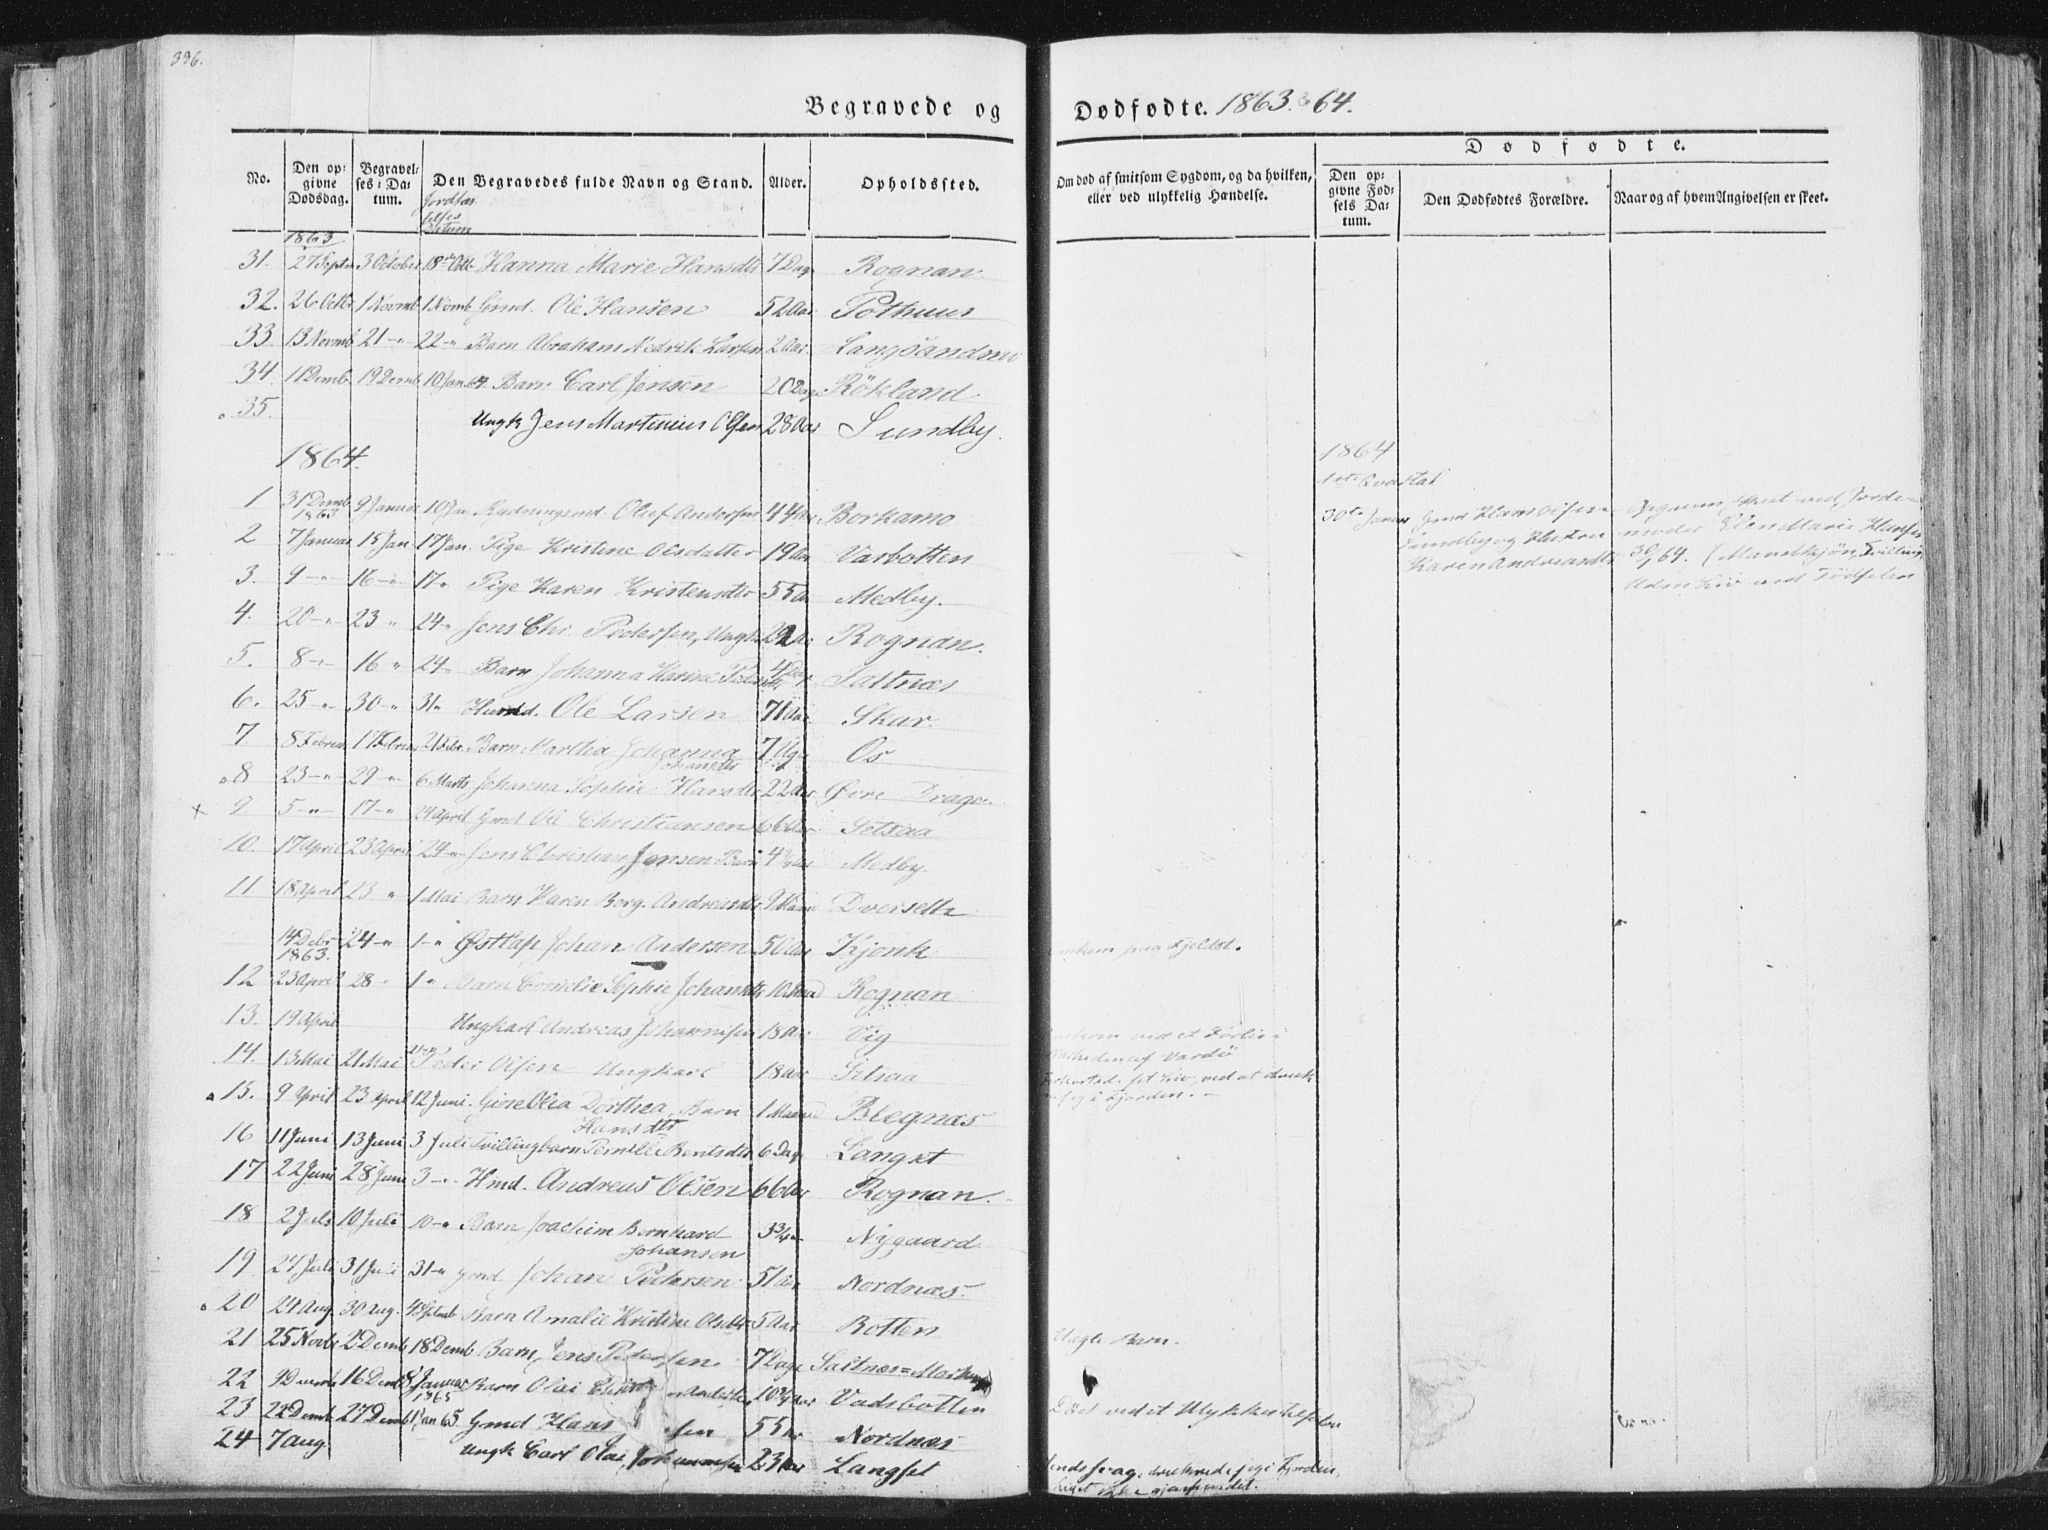 396.
Begravede og Dødfødte. 1863 & 64.
Dødfødte.
No. Den opgivne Dødsdag. Begravelses-Datum. Den Begravedes fulde Navn og Stand. Alder. Opholdssted. Om død af smitsom Sygdom, og da hvilken, eller ved ulykkelig Hændelse. Den opgivne Fødsels Datum. Den Dødfødtes Forældre. Naar og af hvem Angivelsen er skeet.
1863
31. 27 Septbr 3 October 18de Octb Hanna Marie Hansdtr 7 Dage Rognan
32. 26 Octbr 1 Novmb 1 Novmb Gmd. Ole Hansen 52 Aar Pothuus
33. 13 Novmb 21 -"- 22 -"- Barn Abraham Larsen 2 Aar Langsandmo
34. 11 Demb 19 Demb 10 Jan 64 Barn Carl Jensen 20 Dage Rökland
35. Ungk Jens Martinius Olsen 28 Aar Sundby.
1864.
1864
1ste Qvartal
1 31 Demb 1863 9 Januar 10 Jan Oluf Andersen 44 Aar Borkamo
30te Januar Gmd Hans Olsen Sundby og Hustru Karen Andreasdtr
moder Ellen Marie 30/64. (Mandkjøn, Tvilling, uden Liv ved Fødselen
2 7 Januar 15 Jan 17 Jan. Pige Kristine Olsdatter 19 Aar Vasbotten
3. 9 -"- 16 -"- 17 " Pige Karen Kristensdtr 55 Aar Medby.
4. 20 -"- 23 " 24 " Jens Chr. Pedersen, Ungk Aar Rognan.
5. 8 -"- 16 " 24 " Barn Johanna Karine 4 Dage Saltnæs
6. 25 -"- 30 -"- 31 " Huusmd. Ole Larsen 71 Aar Skar.
7. 8 Februar 17 Februar 21 Febr. Barn Martha Johanna Johansdtr 7 Uger Os
8 23 -"- 29 -"- 6 Marts Johanna Sophie Hansdtr 22 Aar Øvre Drage.
x 9. 5 -"- 17 -"- 24 April Gmd Ole Christiansen 66 Aar Setsaa
10. 17 April 23 April 24 -"- Jens Christian Jensen Barn Medby.
11. 18 April 23 " 1 Mai Barn Karen Berg. Andreasdtr 9 Maan Dverseth
14 Debr 1863. 24 -"- 1 -"- Østlap Johan Andersen 50 Aar Kjonk Omkom paa Fjeldet.
12 23 April 28 " 1 " Barn Cornelie Sophie Johansdtr 10 Maand Rognan
13. 19 April Ungkarl Andreas Johannesen 18 Aar Vig Omkom ved et Forlis i Nærheden af Vardö
14. 13 Mai 21 Mai Peder Olsen Ungkarl 18 Aar Setsaa sit Liv, ved at drukne sig i Fjorden.
15. 9 April 23 April 12 Juni. Olia Dorthea Hansdtr Barn 1 Maaned Blegnæs
16 11 Juni 13 Juni 3 Juli Tvillingbarn Pernille Bentsdtr 6 Dage Langset
17 22 Juni 28 Juni 3 -"- Hmd. Andreas Olsen 66 Aar Rognan.
18 2 Juli 10 Juli 10 -"- Barn Joachim Bernhard Johansen 3 3/4 Nygaard
19. 27 Juli 31 Juli 31 -" Gmd Johan Pedersen 51 Aar Nordnæs.
20 24 Aug. 30 Aug. 4 Septmb Barn Amalie Kristine Olsdtr 5 Aar Botten
21 25 Novbr 2 Demb 18 Demb Barn Jens Pedersen 7 Dage Saltnæs= Uægte Barn.
22 9 Decmb 16 Demb 8 Januar 1865 Barn Olai 10 3/4 Aar Vadsbotten
23 22 Demb 27 Demb Jan 65 Gmd Hans 55 Aar Nordnæs Død ved et Ulykkestilfælde
24 7 Aug. Ungk Carl Olai Johannesen 23 Aar Langset